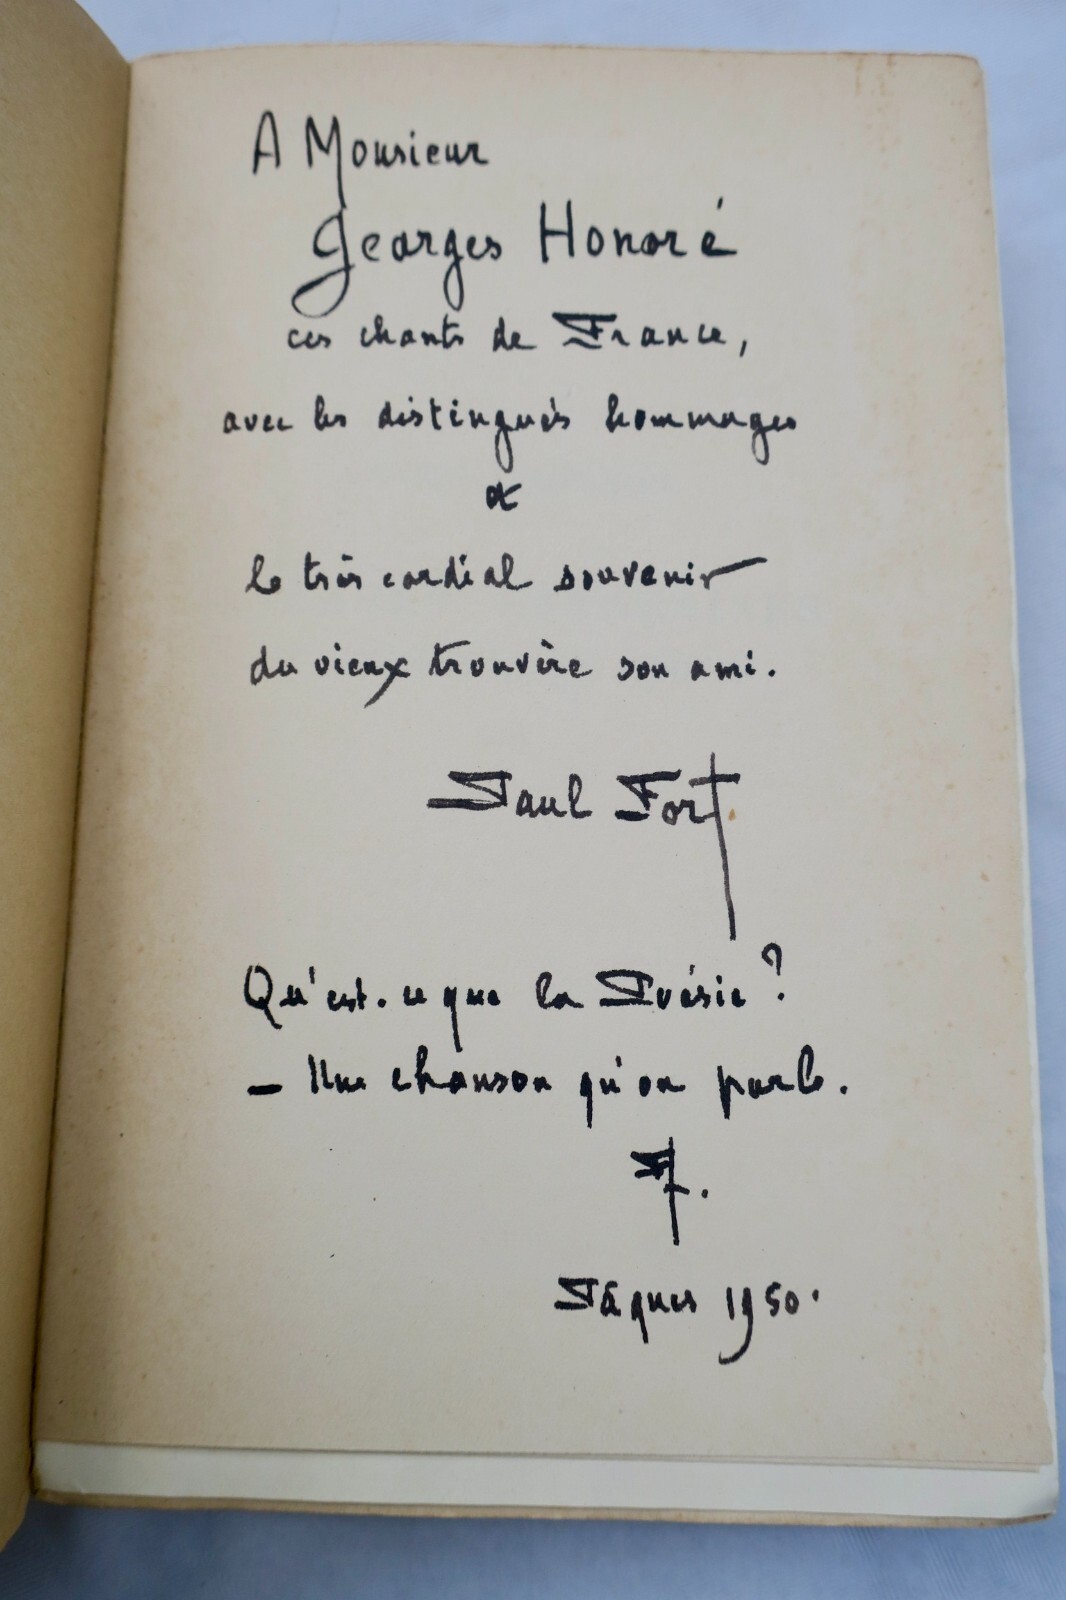 A Monsieur
Georges Honoré
ces chants de France,
avec les distingués hommages
et
le très cordial souvenir
du vieux trouvère son ami.
Paul Fort
Qu'est-ce que la Poésie ?
– Une chanson qu'on parle.
PF.
Pâques 1950.